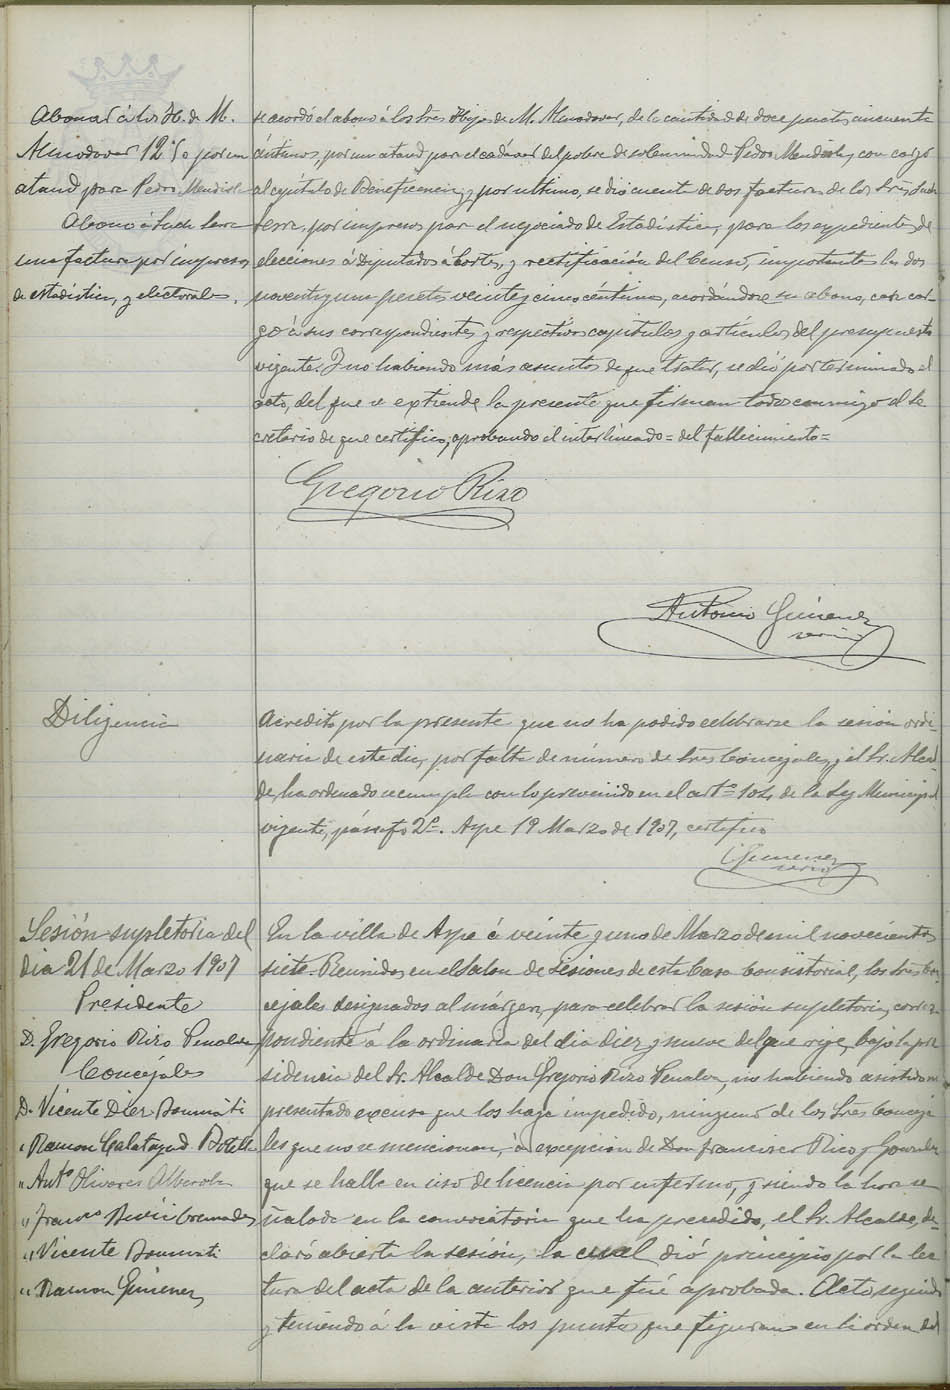 Abonar á los H. de M.
Almodovar 12'50 por un
ataud para Pedro Mendiola
Abono á Such Serra
una factura por impresos
de estadística, y electorales.
se acordó el abono á los Sres Hijos de M. Almodovar, de la cantidad de doce pesetas cincuenta
céntimos, por un ataud para el cadáver del pobre de solemnidad Pedro Mendiola, con cargo
al capítulo de Beneficencia; y por último, se dió cuenta de dos facturas de los Sres Such
Serra, por impresos para el negociado de Estadística, y para los expedientes de
elecciones á Diputados á Cortes, y rectificación del Censo, importantes las dos
noventa y una pesetas veinte y cinco céntimos, acordándose su abono, con car-
go á sus correspondientes y respectivos capítulos y artículos del presupuesto
vigente. Y no habiendo más asuntos de que tratar, se dió por terminado el
acto, del que se extiende la presente que firman todos conmigo el Se
cretario de que certifico; aprobando el interlineado = del fallecimiento =
Gregorio Rizo
Antonio Gimenez
serio
Diligencia
Acredito por la presente que no ha podido celebrarse la sesión ordi-
naria de este dia, por falta de número de Sres Concejales, y el Sr. Alcal-
de, ha ordenado se cumpla con lo prevenido en el artº 104 de la Ley Municipal
vigente, párrafo 2º. Aspe 19 Marzo de 1907, certifico
Gimenez
serio
Sesión supletoria del
dia 21 de Marzo 1907
Presidente
D. Gregorio Rizo Penalva
Concejales
D. Vicente Diez Boumati
" Ramon Calatayud Botella
" Antº Olivares Alberola
" Franco Cremades
" Vicente Boumati
" Ramon Gimenez
En la villa de Aspe á veinte y uno de Marzo de mil novecientos
siete. Reunidos en el Salon de Sesiones de esta Casa Consistorial, los Sres Con-
cejales designados al márgen, para celebrar la sesión supletoria, corres-
pondiente á la ordinaria del dia diez y nueve del que rige, bajo la pre
sidencia del Sr. Alcalde Don Gregorio Rizo Penalva, no habiendo asistido ni
presentado excusa que los haga impedido, ninguno de los Sres Conceja
les que no se mencionan, á excepcion de Don Francisco Rico y Gonzalez
que se halla en uso de licencia por enfermo, y siendo la hora se
ñalada en la convocatoria que ha precedido, el Sr. Alcalde, de-
claró abierta la sesión, la cual dió principio por la lec
tura del acta de la anterior que fué aprobada. Acto seguido
y teniendo á la vista los puntos que figuran en la orden del